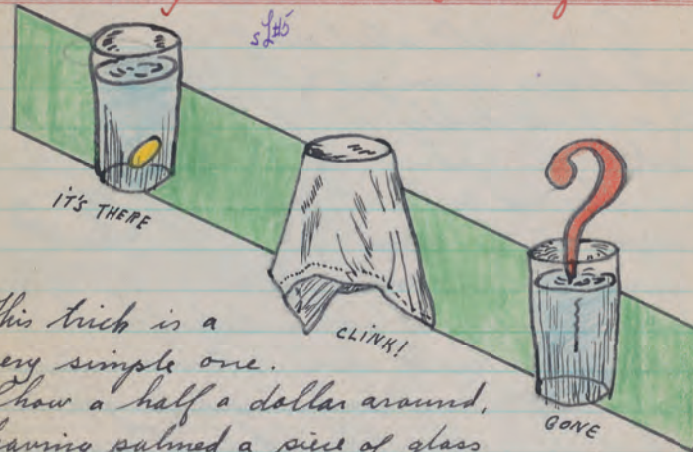 IT'S THERE
CLINK!
GONE
This trick is a
very simple one.
Show a half a dollar around,
having palmed a piece of glass